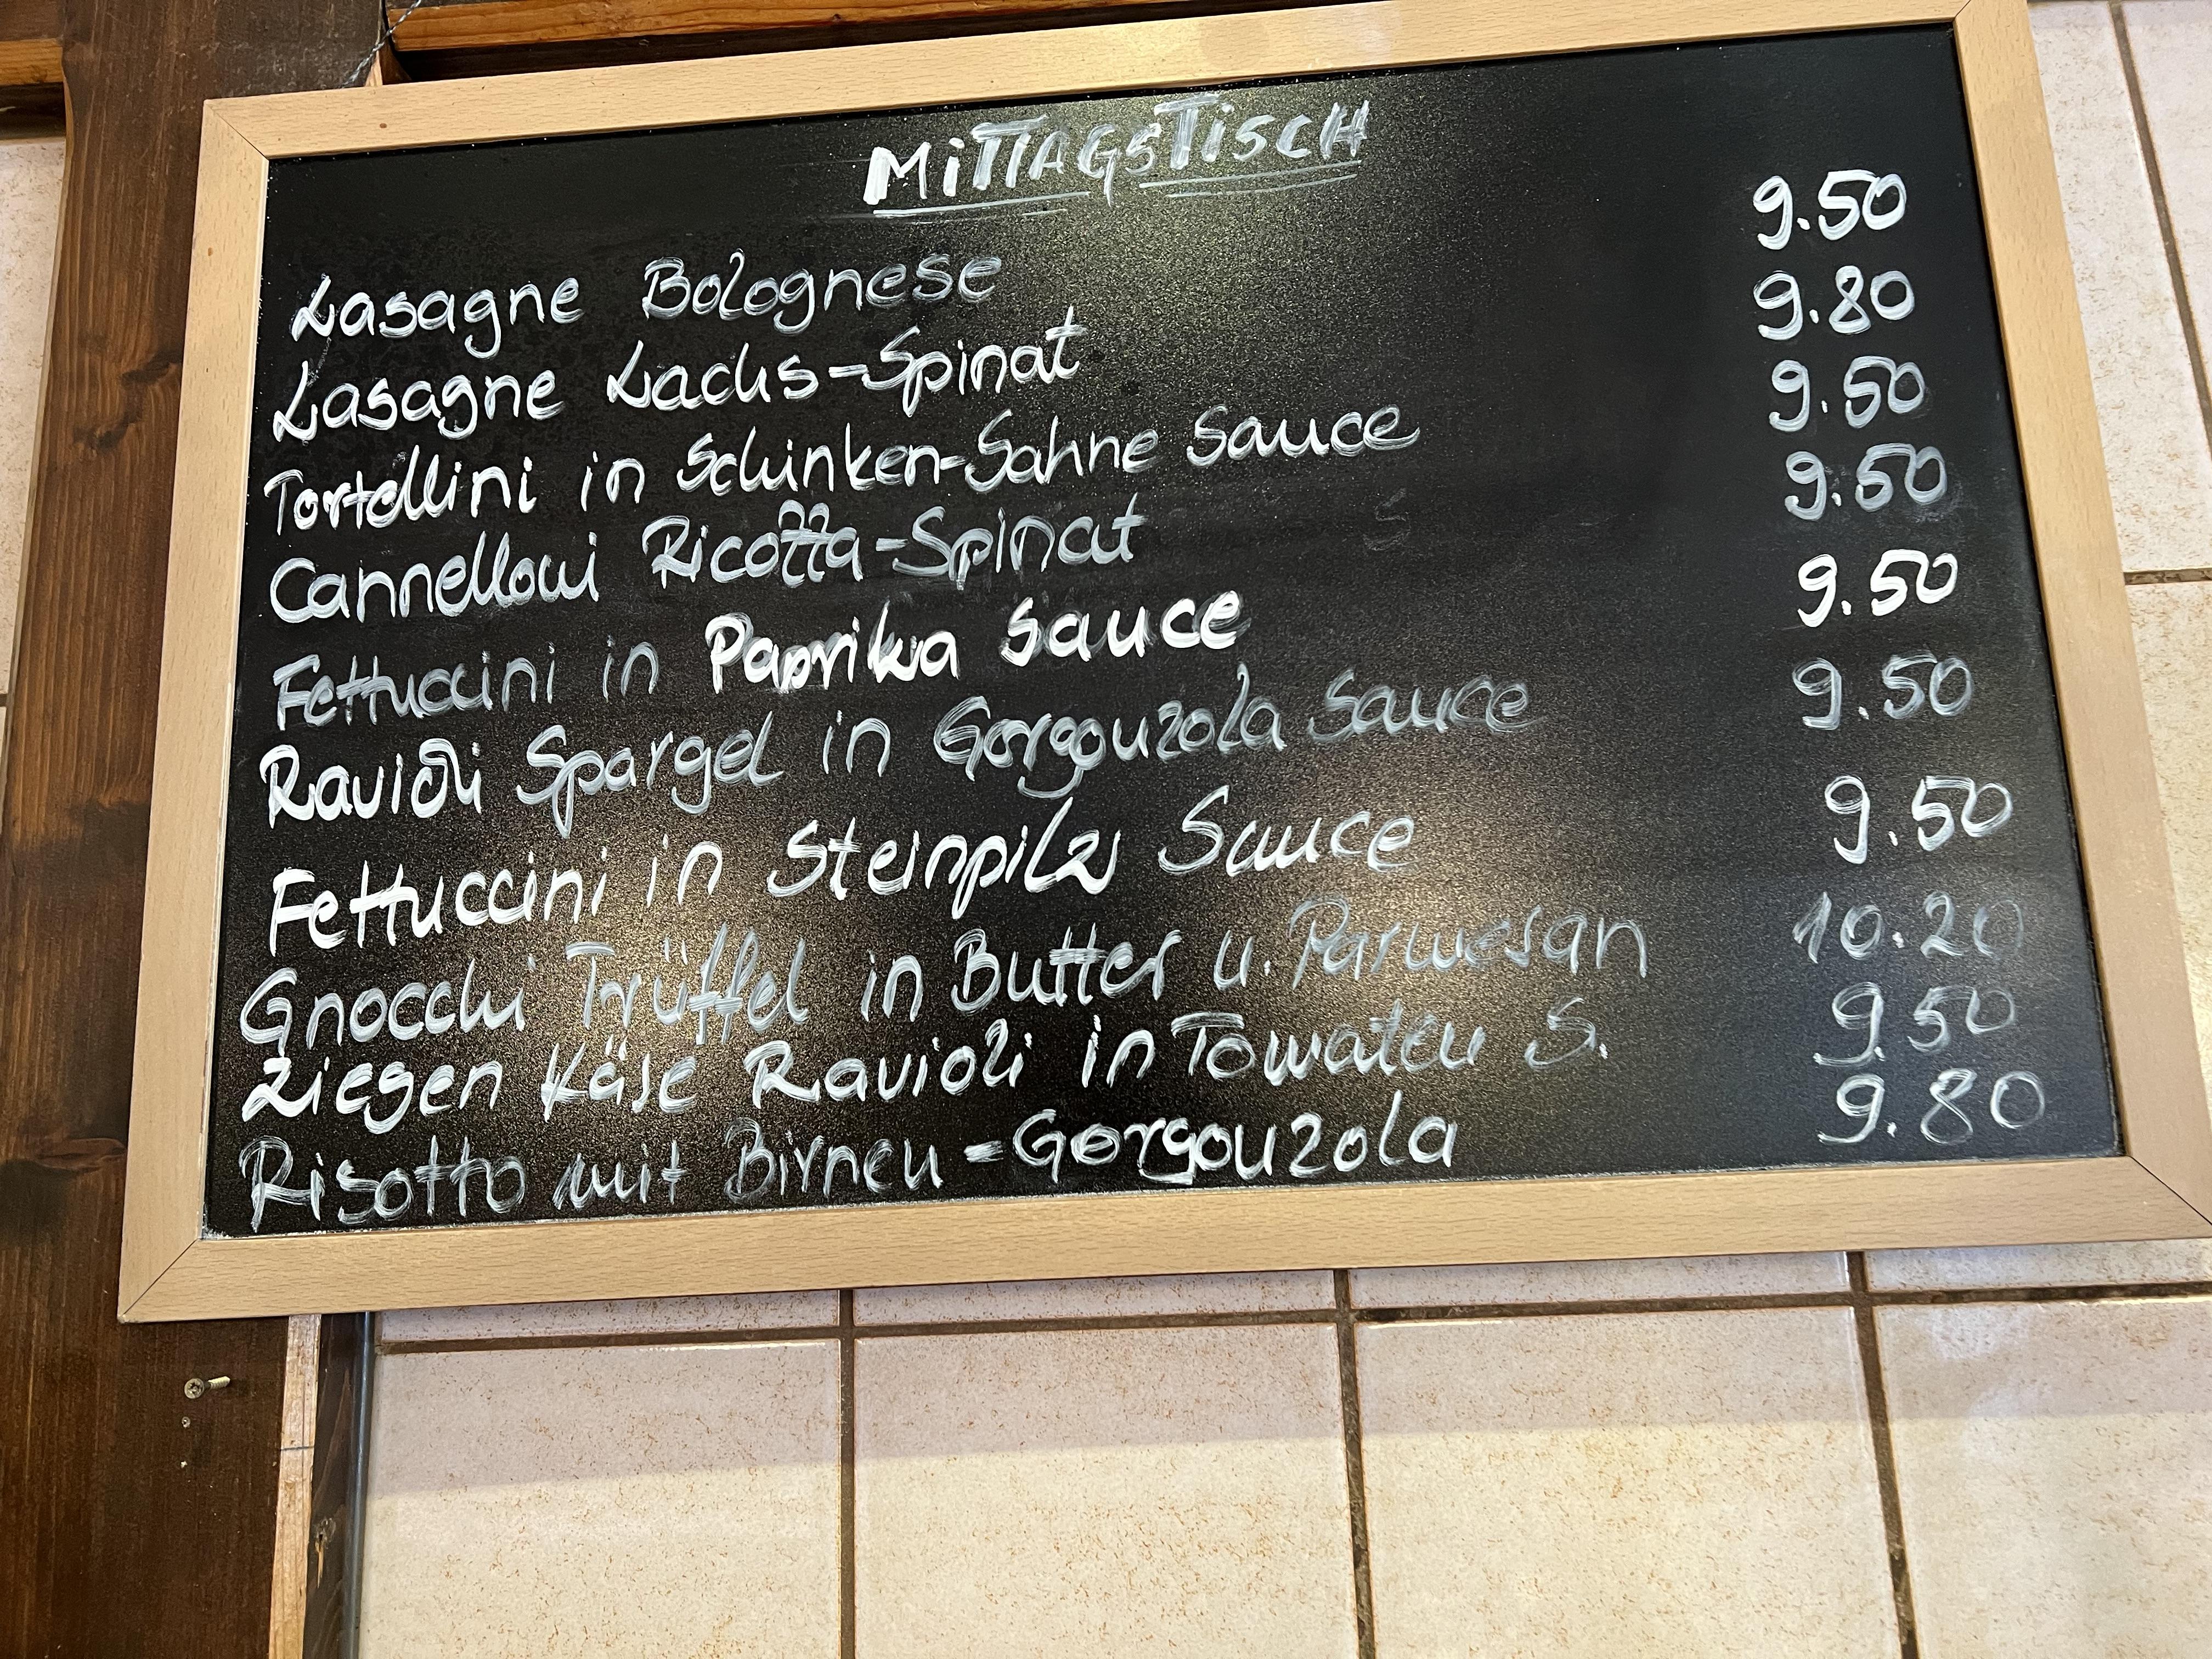 MiTTAGSTiSCH
Lasagne Bolognese 9.50
Lasagne Lachs-Spinat 9.80
Tortellini in Schinken-Sahne Sauce 9.50
Cannelloni Ricotta-Spinat 9.50
Fettuccini in Paprika Sauce 9.50
Ravioli Spargel in Gorgonzola Sauce 9.50
Fettuccini in Steinpilz Sauce 9.50
Gnocchi Trüffel in Butter u. Parmesan 10.20
Ziegen Käse Ravioli in Tomaten S. 9.50
Risotto mit Birnen-Gorgonzola 9.80